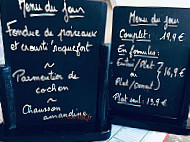 Menu du jour
Fondue de poireaux
et crouté roquefort
~
Parmentier de
cochon
~
Chausson
amandine
Menu du jour
Complet : 19,9 €
En formules :
Entrée / Plat
ou
Plat / Dessert
} 16,9 €
Plat seul : 13,9 €